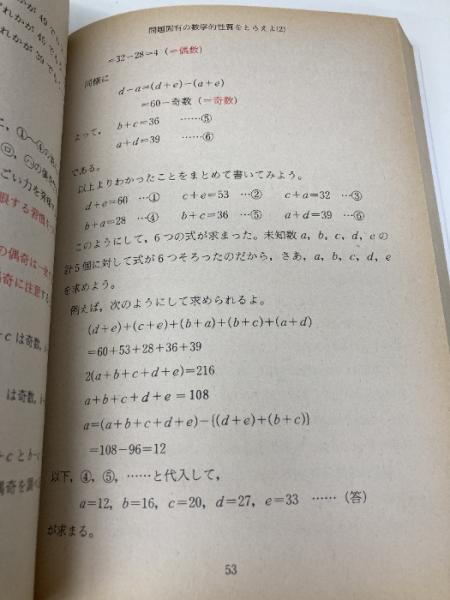 問題固有の数学的性質をとらえよ(2)
=32−28=4 (=偶数)
同様に
d−a=(d+e)−(a+e)
=60−奇数 (=奇数)
よって, b+c=36 ……⑤
a+d=39 ……⑥
である。
以上よりわかったことをまとめて書いてみよう。
d+e=60 …① c+e=53 …② c+a=32 …③
b+a=28 …④ b+c=36 …⑤ a+d=39 …⑥
このようにして, 6つの式が求まった。未知数 a, b, c, d, e の
計5個に対して式が6つそろったのだから, さあ, a, b, c, d, e
を求めよう。
例えば, 次のようにして求められるよ。
(d+e)+(c+e)+(b+a)+(b+c)+(a+d)
=60+53+28+36+39
2(a+b+c+d+e)=216
a+b+c+d+e=108
a=(a+b+c+d+e)−{(d+e)+(b+c)}
=108−96=12
以下, ④, ⑤, ……と代入して,
a=12, b=16, c=20, d=27, e=33 ……(答)
が求まる。
53